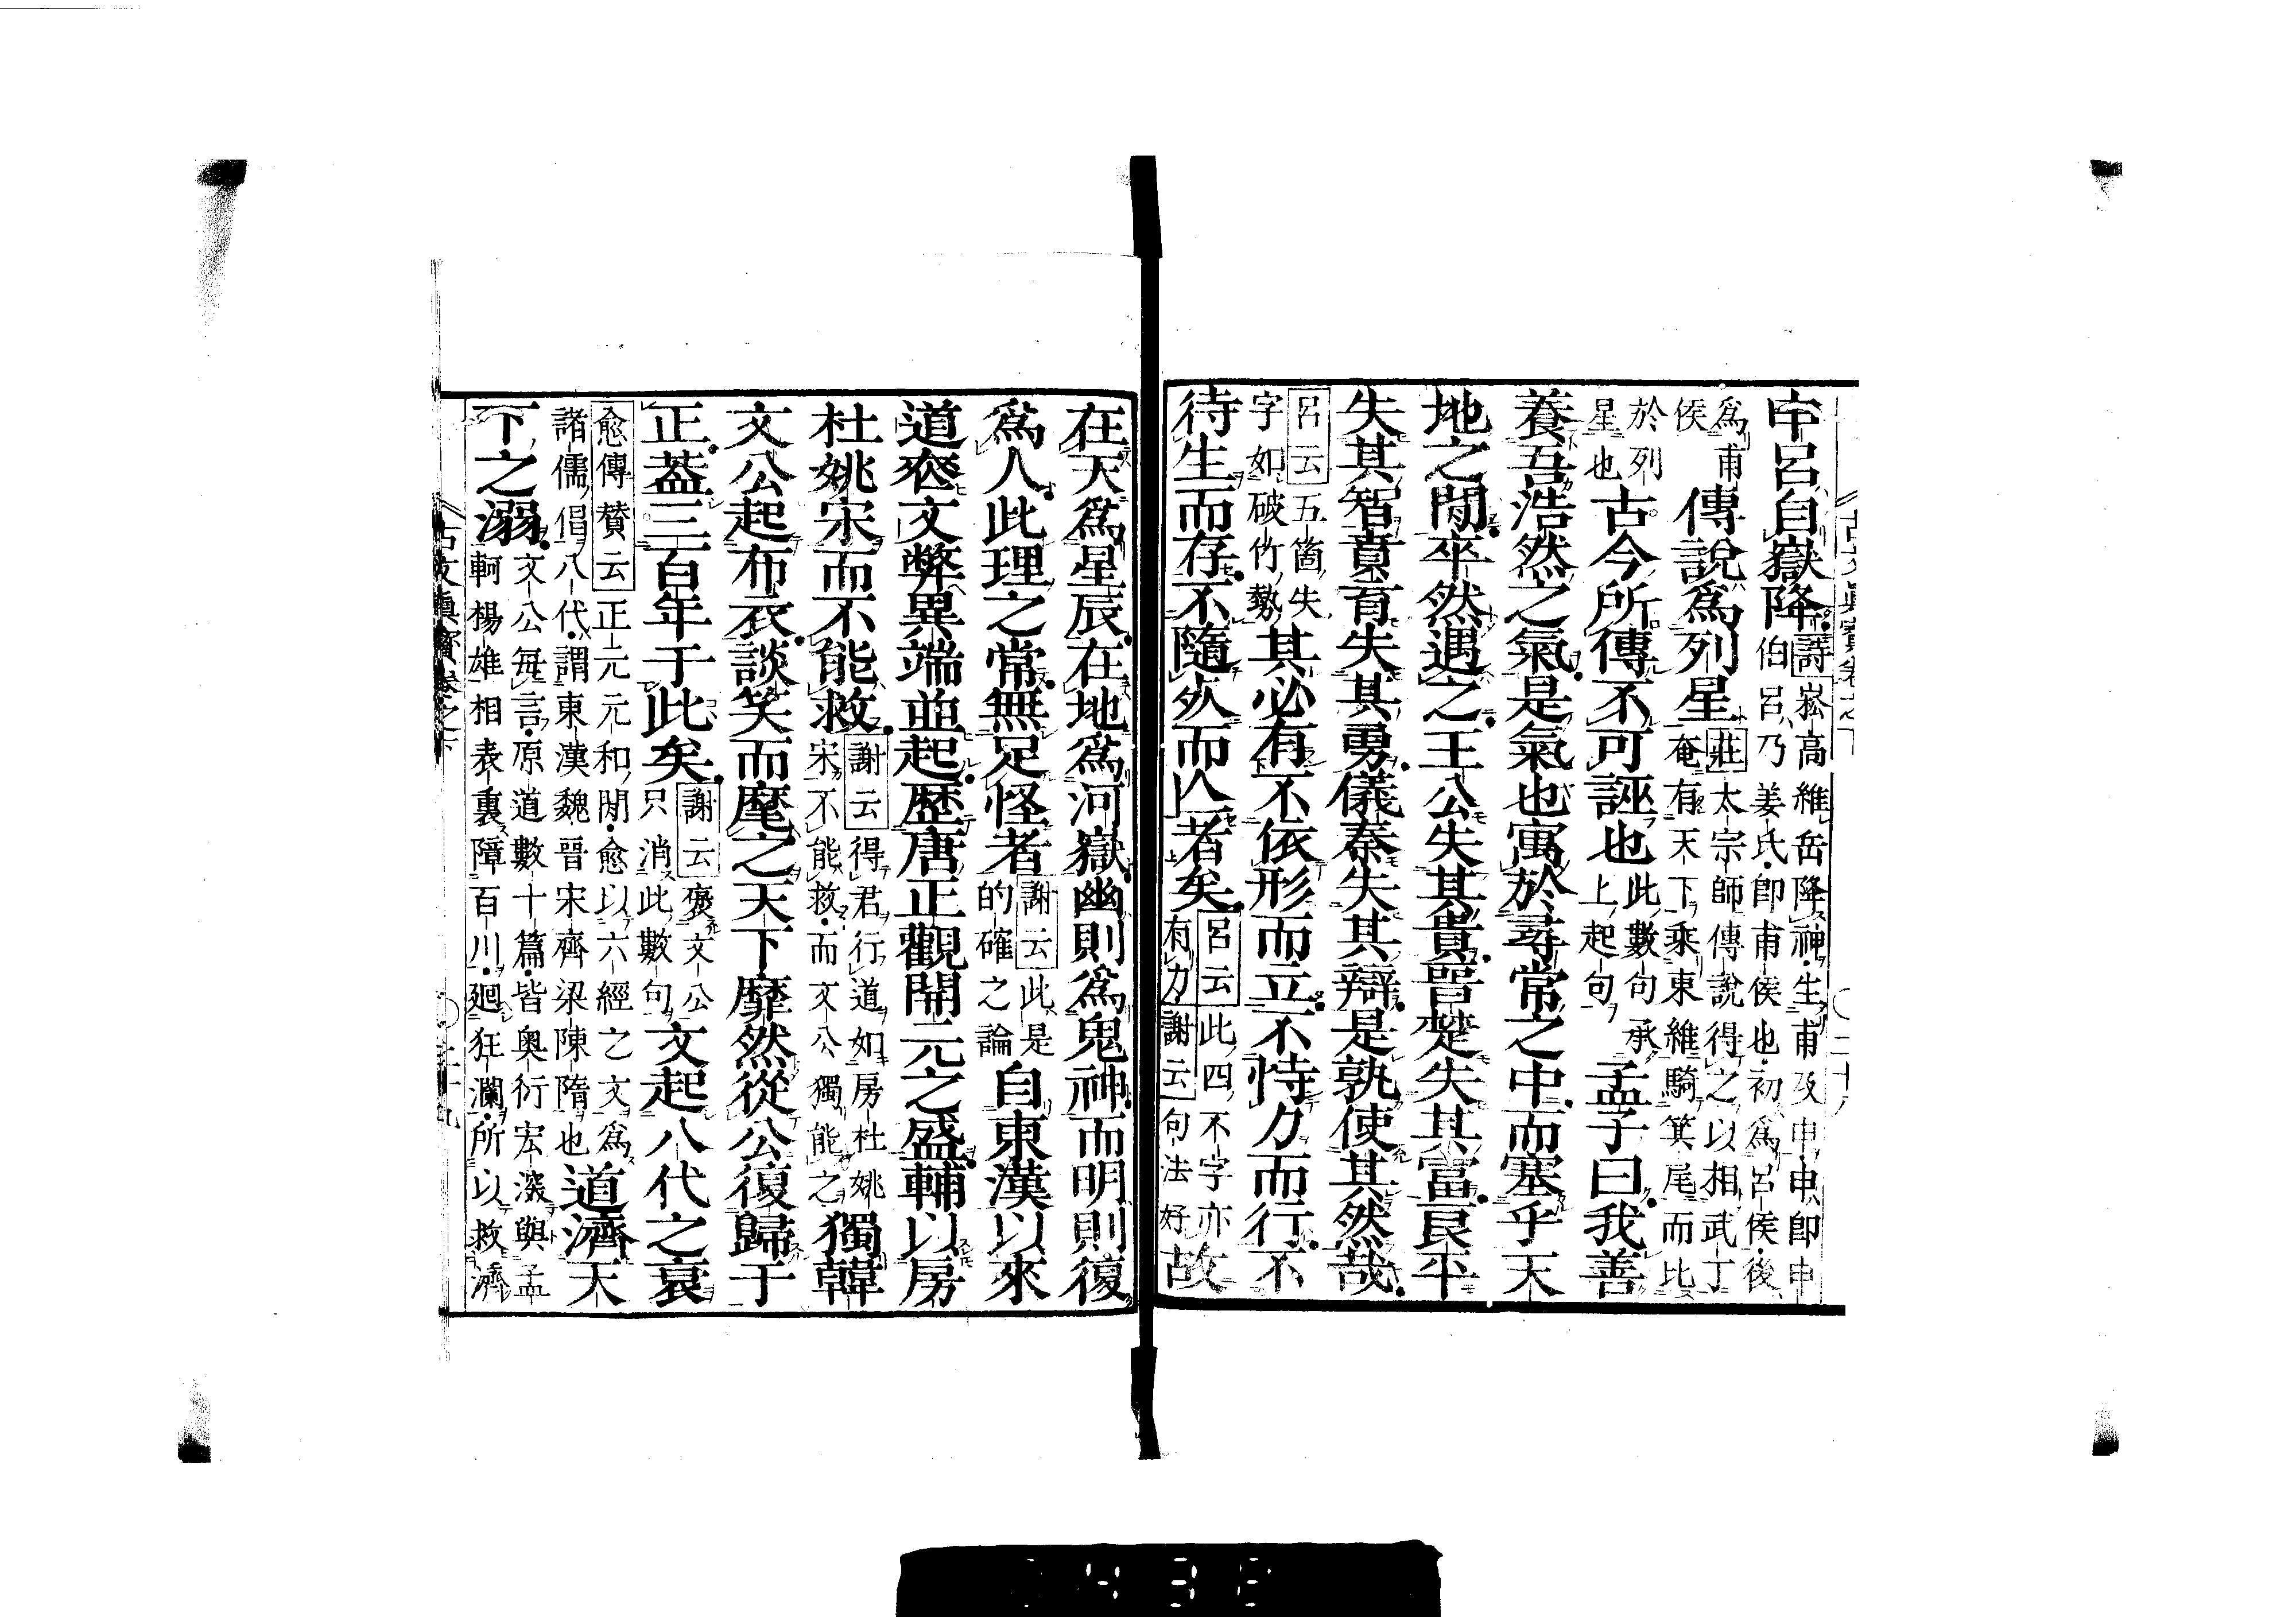 申呂自嶽降詩崧高維岳降神生甫及申申卽申
伯呂乃姜氏卽甫侯也初爲呂侯後
爲甫
侯傳說爲列星莊太宗師傳說得之以相武丁
奄有天下乘東維騎箕尾而比
於列
星也古今所傳不可誣也此數句承
上起句孟子曰我善
養吾浩然之氣是氣也寓於尋常之中而塞乎天
地之閒卒然遇之王公失其貴晋楚失其富良平
失其智賁育失其勇儀秦失其辯是孰使其然哉
呂云五箇失
字如破竹勢其必有不依形而立不恃力而行不
待生而存不隨死而亾者矣呂云此四不字亦
有力謝云句法好故
在天爲星辰在地爲河嶽幽則爲鬼神而明則復
爲人此理之常無足怪者謝云此是
的確之論自東漢以來
道喪文弊異端並起歷唐正觀開元之盛輔以房
杜姚宋而不能救謝云得君行道如房杜姚
宋不能救而文公獨能之獨韓
文公起布衣談笑而麾之天下靡然從公復歸于
正蓋三百年于此矣謝云褒文公
只消此數句文起八代之衰
愈傳贊云正元元和閒愈以六經之文爲
諸儒倡八代謂東漢魏晉宋齊梁陳隋也道濟天
下之溺文公每言原道數十篇皆奧衍宏深與孟
軻楊雄相表裏障百川廻狂瀾所以救濟
古文眞寶卷之下